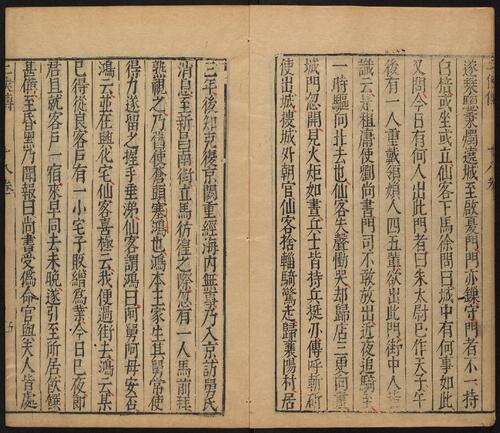 遂乘驄秉燭遶城至啟夏門門亦鎖守門者不一持
白棓或坐或立仙客下馬徐問曰城中有何事如此
又問今日有何人出此門者曰朱太尉已作天子午
後有一人重戴領婦人四五輩欲出此門街中人皆
識云是租庸使劉尚書門司不敢放出近夜追騎至
一時驅向北去也仙客失聲慟哭却歸店三更向盡
城門忽開見火炬如晝兵士皆持兵挺刃傳呼斬斫
使出城搜城外朝官仙客捨輜騎驚走歸襄陽村居
三年後知克復京闕重經海內無事乃入京訪舅氏
消息至新昌南街立馬彷徨之際忽有一人馬前拜
熟視之乃舊使蒼頭塞鴻也鴻本王家生其舅常使
得力遂留之握手垂涕仙客謂鴻曰阿舅阿母安否
鴻云並在興化宅仙客喜極云我便過街去鴻云某
已得從良客戶有一小宅子販繒爲業今日已夜郎
君且就客戶一宿來早同去未晚遂引至所居飲饌
甚備至昏黑乃聞報曰尚書受僞命官與夫人皆處